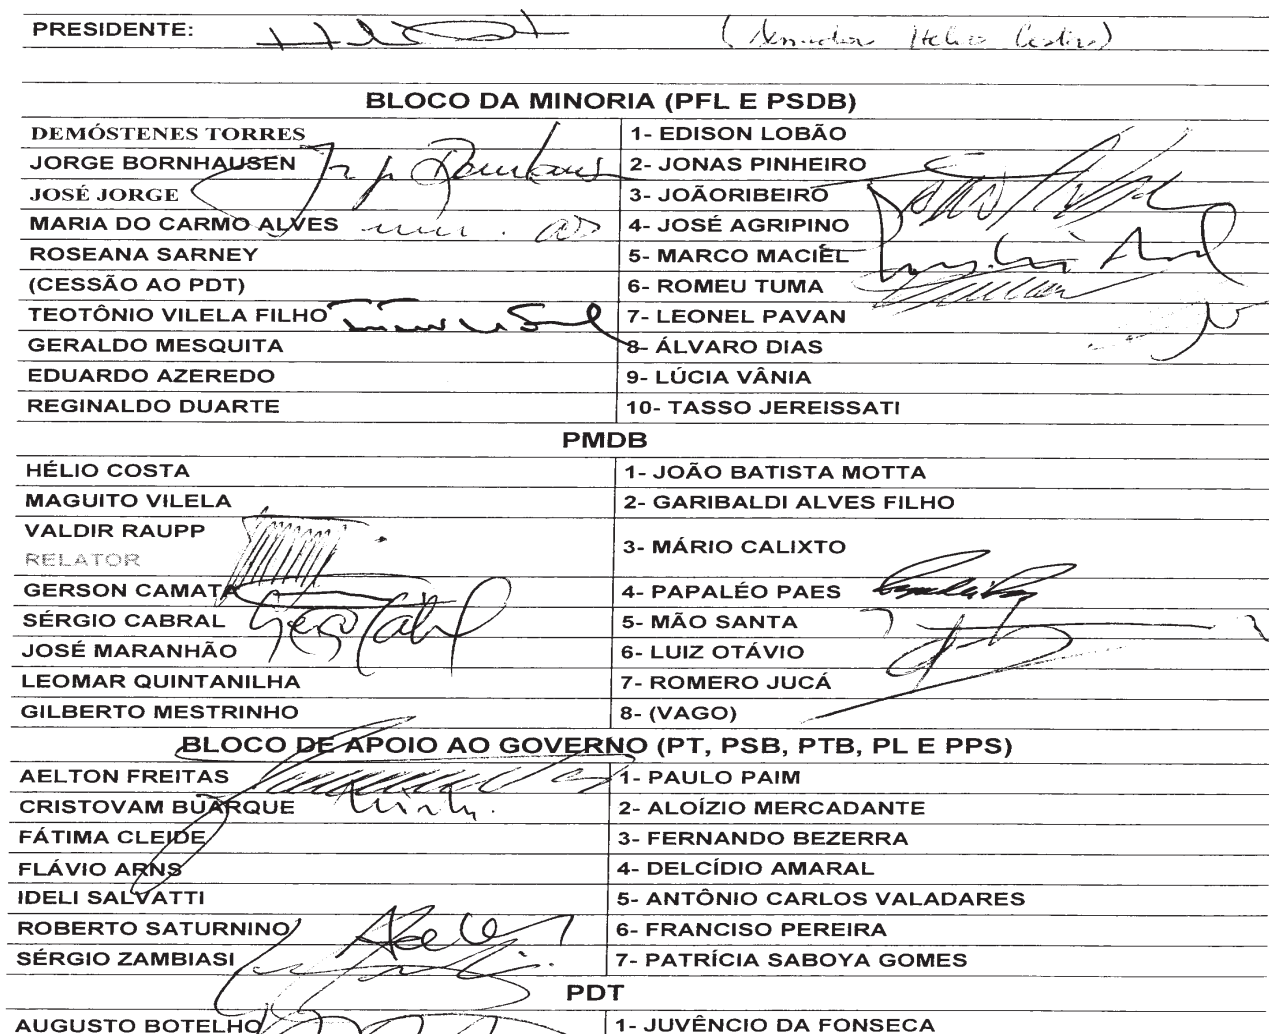 PRESIDENTE: (Senador Hélio Costa)
BLOCO DA MINORIA (PFL E PSDB)
DEMÓSTENES TORRES 1- EDISON LOBÃO
JORGE BORNHAUSEN 2- JONAS PINHEIRO
JOSÉ JORGE 3- JOÃORIBEIRO
MARIA DO CARMO ALVES 4- JOSÉ AGRIPINO
ROSEANA SARNEY 5- MARCO MACIEL
(CESSÃO AO PDT) 6- ROMEU TUMA
TEOTÔNIO VILELA FILHO 7- LEONEL PAVAN
GERALDO MESQUITA 8- ÁLVARO DIAS
EDUARDO AZEREDO 9- LÚCIA VÂNIA
REGINALDO DUARTE 10- TASSO JEREISSATI
PMDB
HÉLIO COSTA 1- JOÃO BATISTA MOTTA
MAGUITO VILELA 2- GARIBALDI ALVES FILHO
VALDIR RAUPP
RELATOR 3- MÁRIO CALIXTO
GERSON CAMATA 4- PAPALÉO PAES
SÉRGIO CABRAL 5- MÃO SANTA
JOSÉ MARANHÃO 6- LUIZ OTÁVIO
LEOMAR QUINTANILHA 7- ROMERO JUCÁ
GILBERTO MESTRINHO 8- (VAGO)
BLOCO DE APOIO AO GOVERNO (PT, PSB, PTB, PL E PPS)
AELTON FREITAS 1- PAULO PAIM
CRISTOVAM BUARQUE 2- ALOÍZIO MERCADANTE
FÁTIMA CLEIDE 3- FERNANDO BEZERRA
FLÁVIO ARNS 4- DELCÍDIO AMARAL
IDELI SALVATTI 5- ANTÔNIO CARLOS VALADARES
ROBERTO SATURNINO 6- FRANCISO PEREIRA
SÉRGIO ZAMBIASI 7- PATRÍCIA SABOYA GOMES
PDT
AUGUSTO BOTELHO 1- JUVÊNCIO DA FONSECA